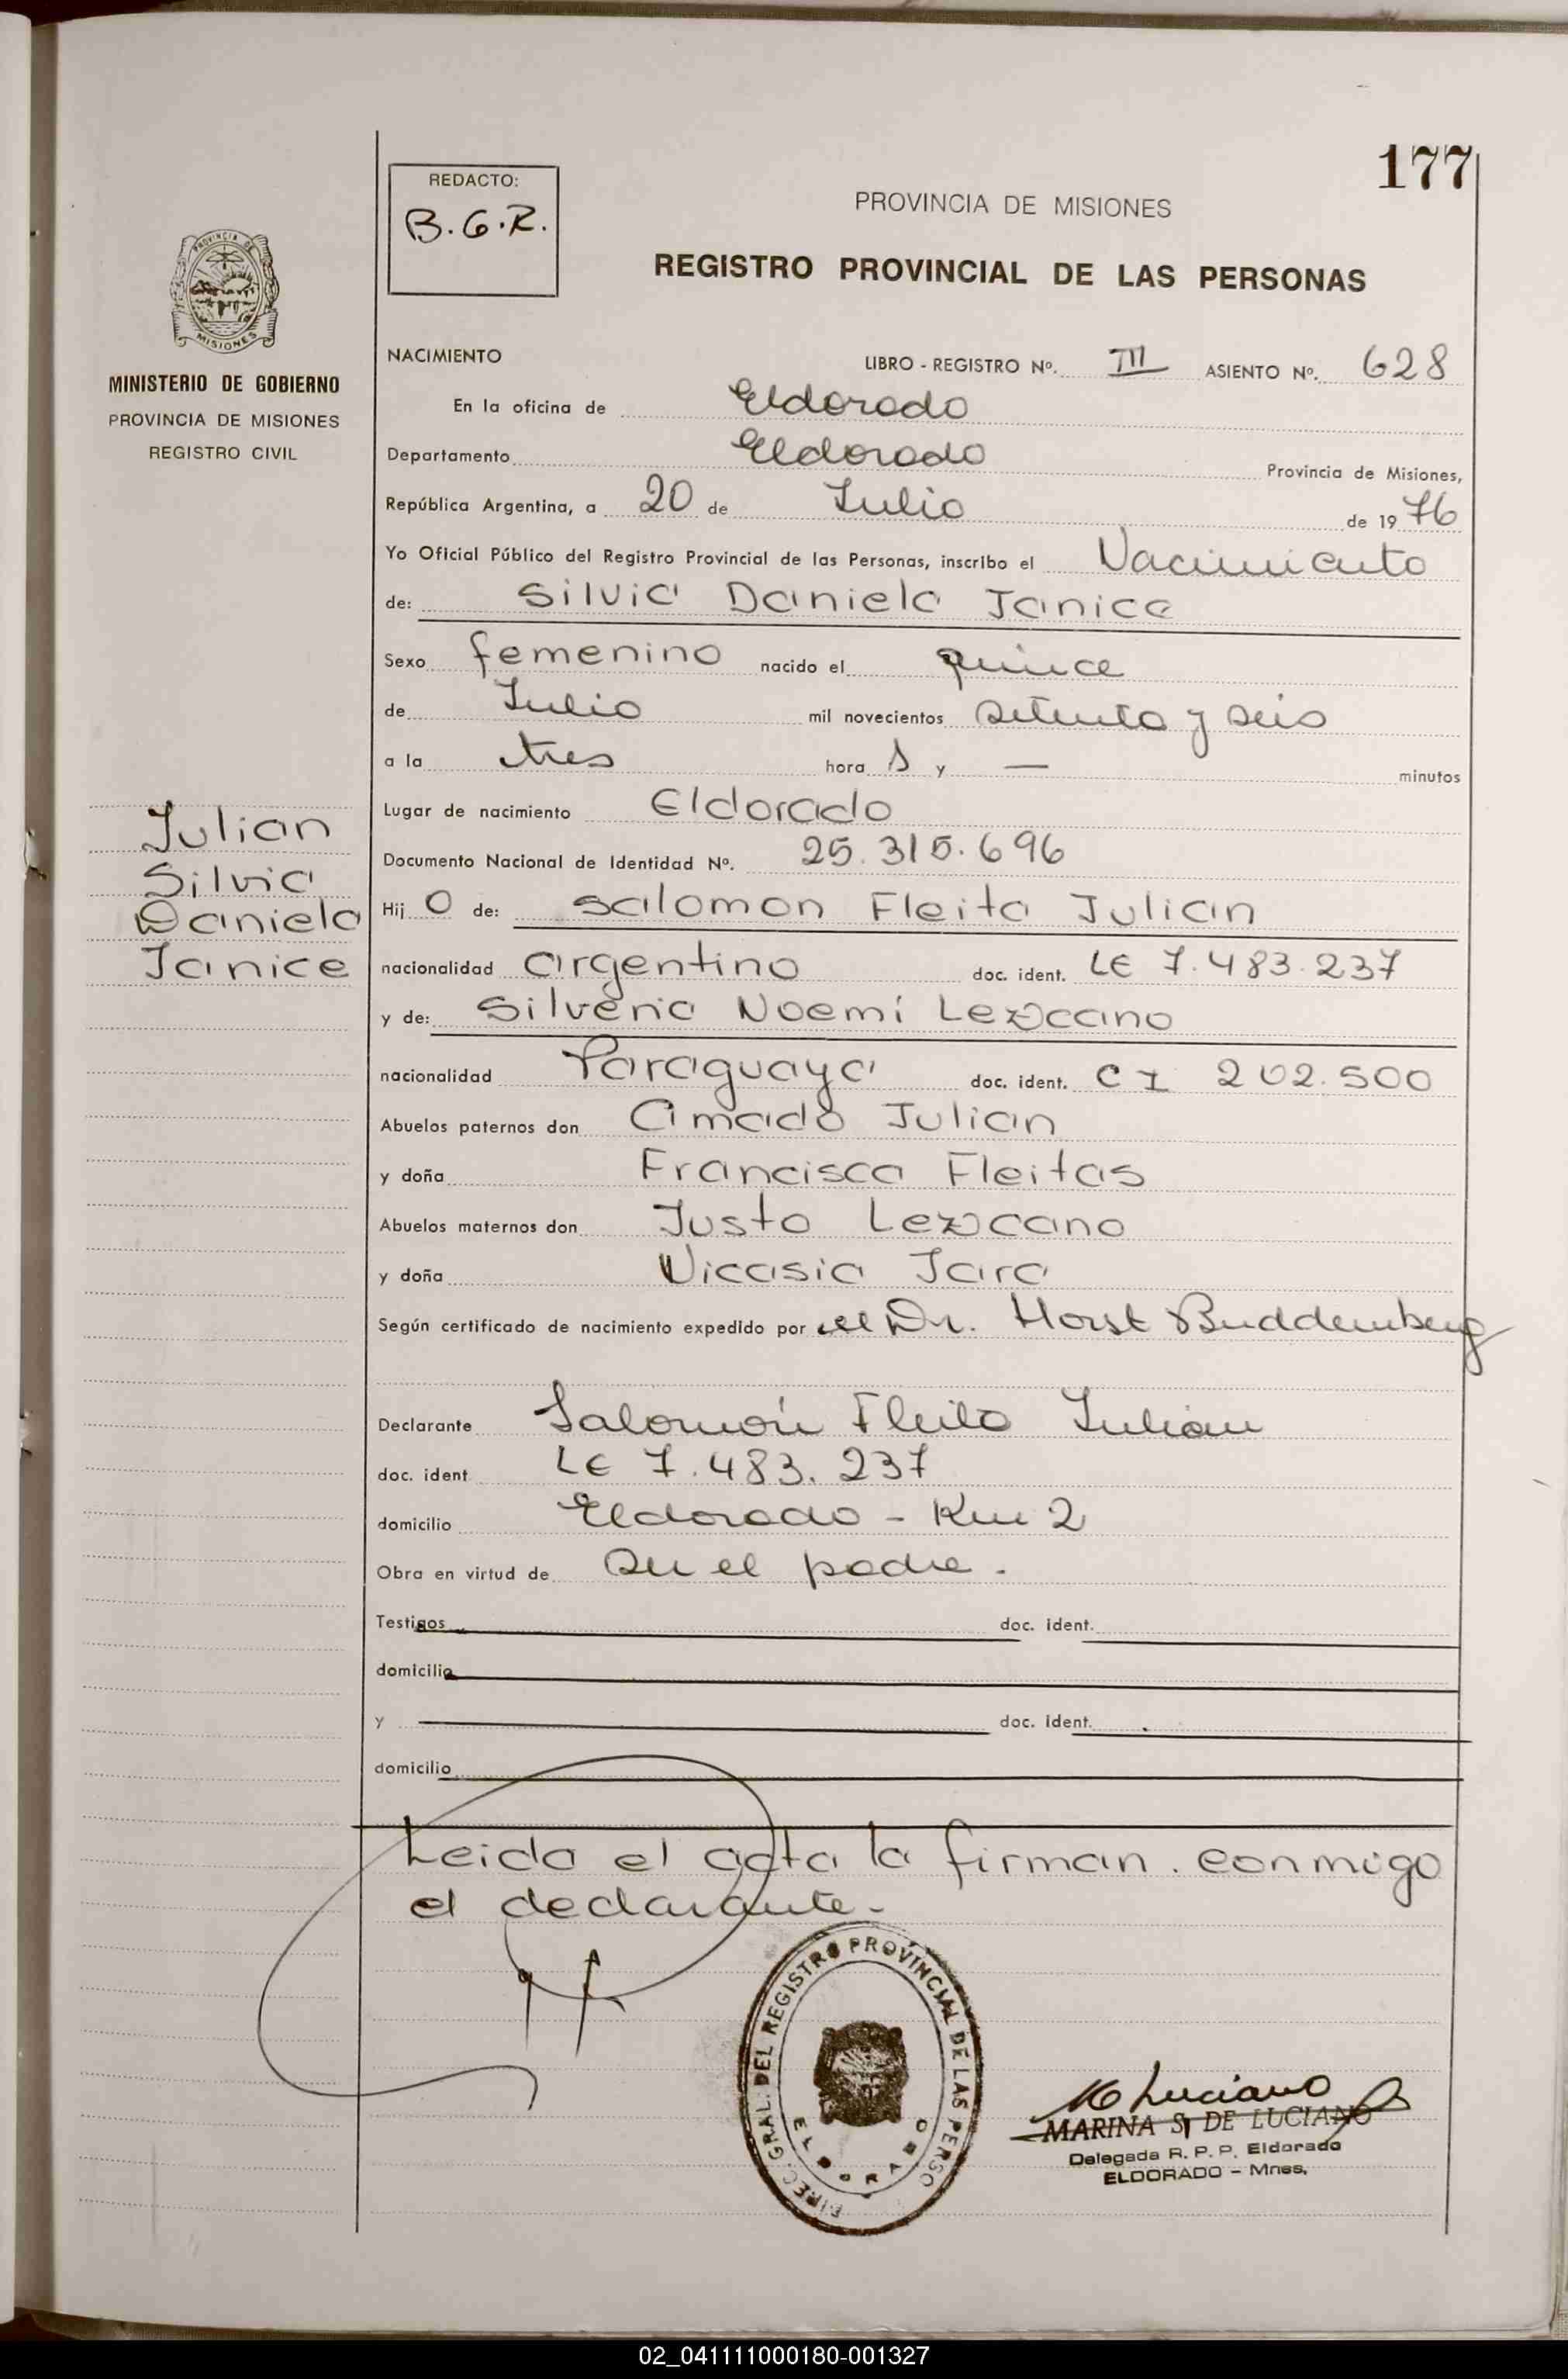 177
REDACTO:
B.G.R.
PROVINCIA DE MISIONES
REGISTRO PROVINCIAL DE LAS PERSONAS
PROVINCIA DE
MISIONES
MINISTERIO DE GOBIERNO
PROVINCIA DE MISIONES
REGISTRO CIVIL
NACIMIENTO LIBRO - REGISTRO Nº. III ASIENTO Nº. 628
En la oficina de Eldorado
Departamento Eldorado Provincia de Misiones,
República Argentina, a 20 de Julio de 1976
Yo Oficial Público del Registro Provincial de las Personas, inscribo el Nacimiento
de: Silvia Daniela Janice
Sexo femenino nacido el quince
de Julio mil novecientos setenta y seis
a la tres hora s y — minutos
Lugar de nacimiento Eldorado
Documento Nacional de Identidad Nº. 25.315.696
Julian
Silvia
Daniela
Janice
Hij o de: Salomon Fleita Julian
nacionalidad argentino doc. ident. LE 7.483.237
y de: Silveria Noemí Lezcano
nacionalidad Paraguaya doc. ident. CI 202.500
Abuelos paternos don Amado Julian
y doña Francisca Fleitas
Abuelos maternos don Justo Lezcano
y doña Nicasia Jara
Según certificado de nacimiento expedido por el Dr. Horst Buddemberg
Declarante Salomón Fleita Julian
doc. ident. LE 7.483.237
domicilio Eldorado - Km 2
Obra en virtud de ser el padre.
Testigos doc. ident.
domicilio
y doc. ident.
domicilio
Leida el acta la firman conmigo
el declarante.-
DIREC. GRAL. DEL REGISTRO PROVINCIAL DE LAS PERSO
ELDORADO
M Luciano
MARINA S. DE LUCIANO
Delegada R. P. P. Eldorado
ELDORADO - Mnes.
02_041111000180-001327